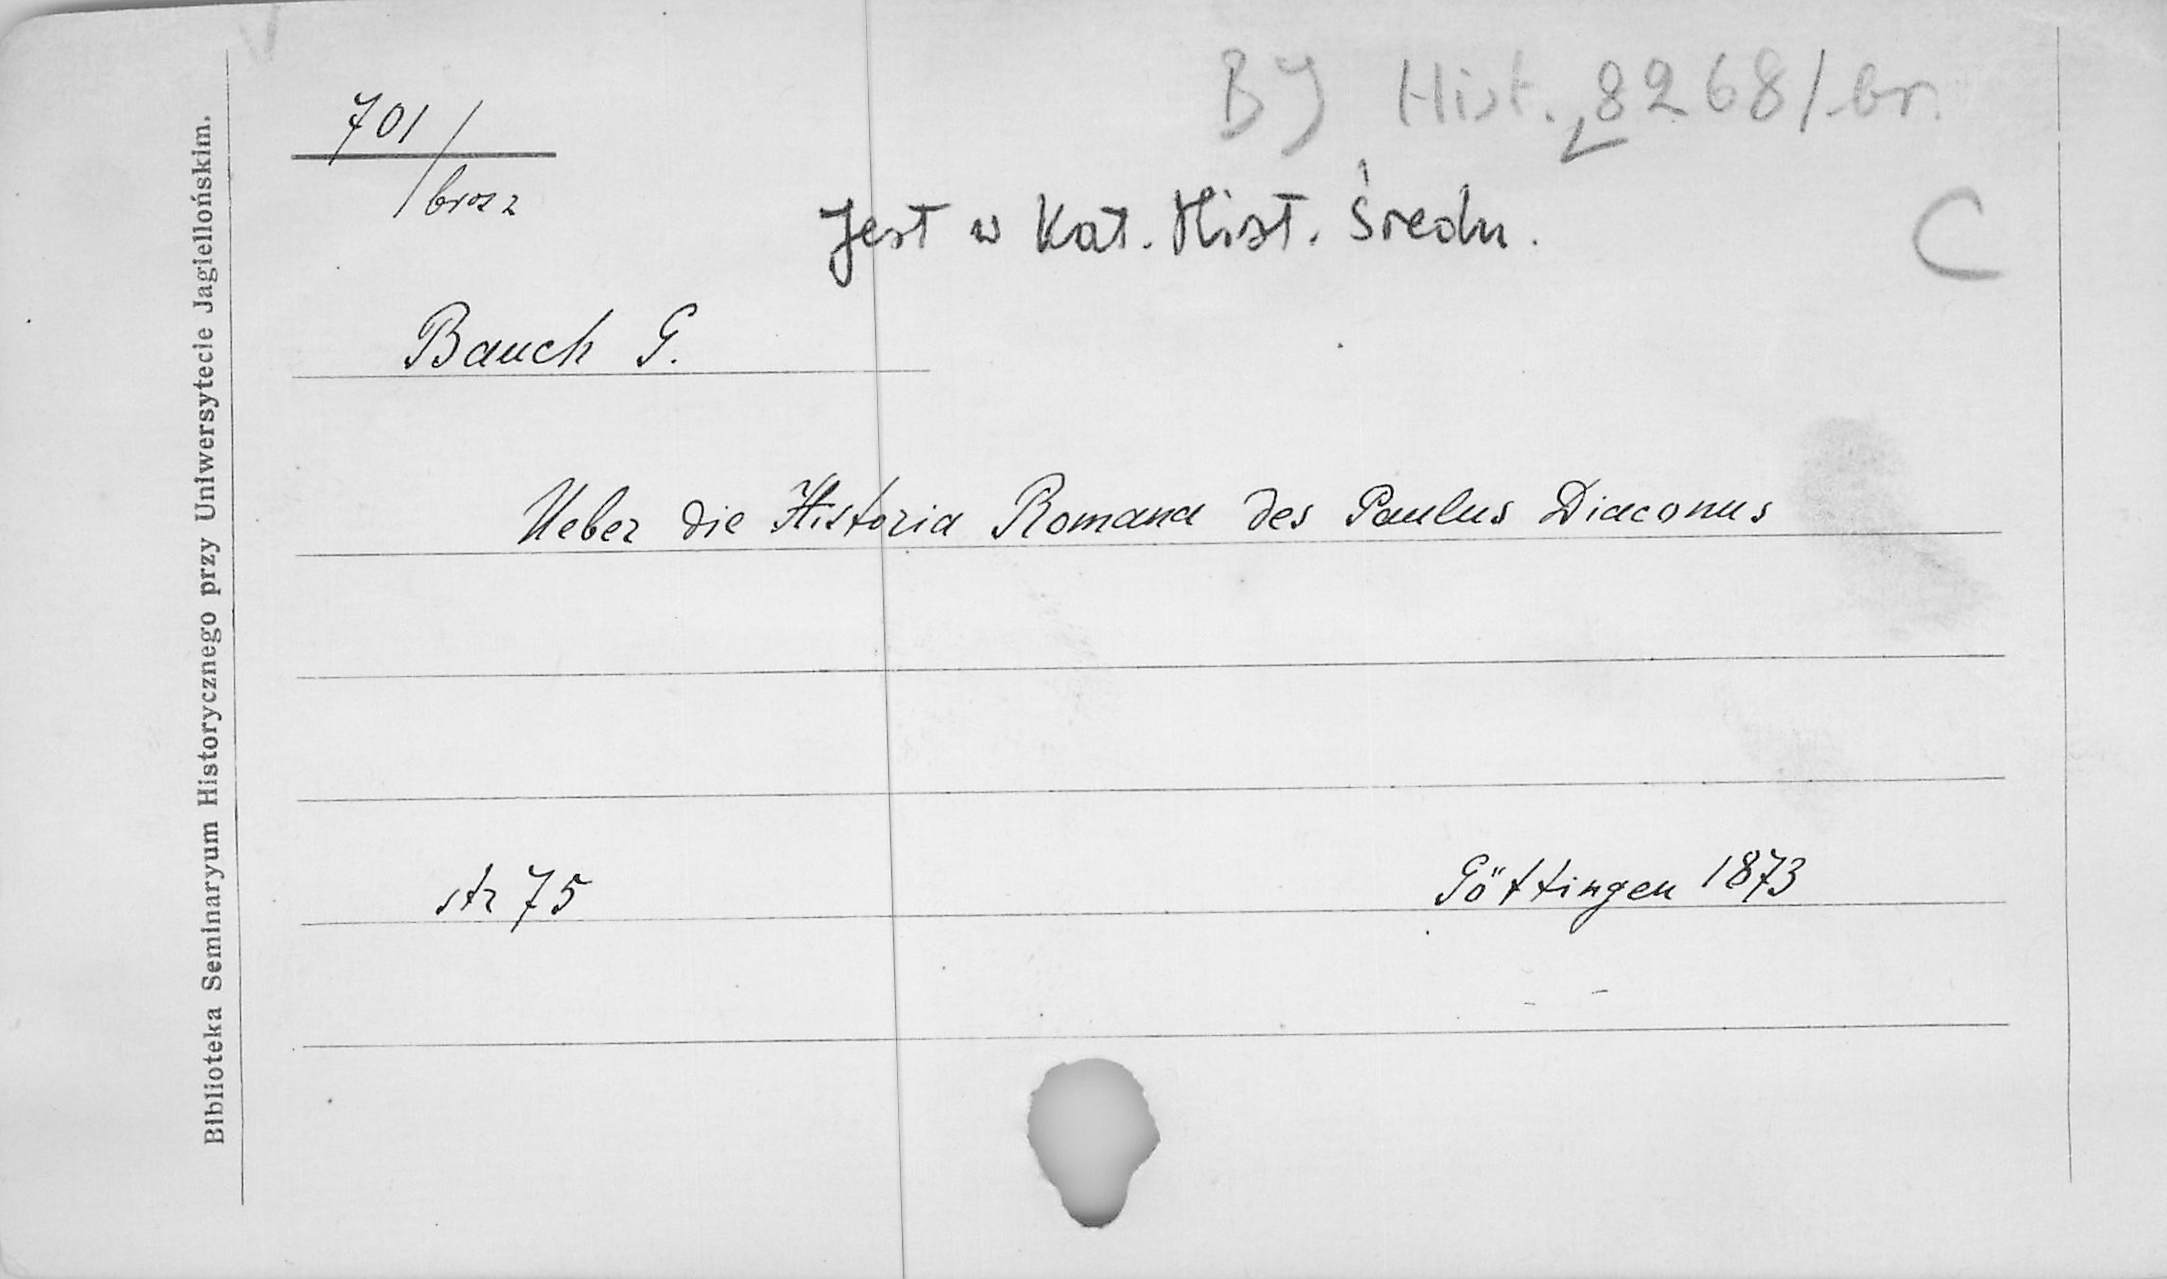 BJ Hist. 8268/br.
701/brosz
Jest w Kat. Hist. Średn.
C
Bauch G.
Ueber die Historia Romana des Paulus Diaconus
str 75
Göttingen 1873
Biblioteka Seminaryum Historycznego przy Uniwersytecie Jagiellońskim.